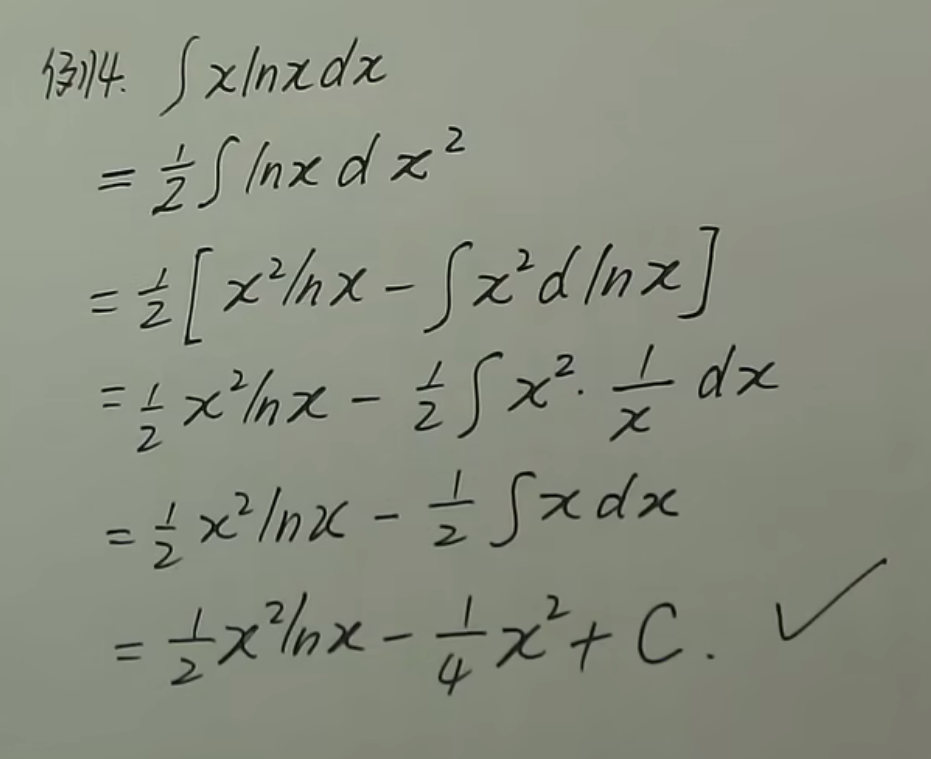 例4. ∫xlnxdx
= 1/2 ∫ lnx d x²
= 1/2 [ x²lnx - ∫x²d lnx ]
= 1/2 x²lnx - 1/2 ∫ x² · 1/x dx
= 1/2 x²lnx - 1/2 ∫ x dx
= 1/2 x²lnx - 1/4 x² + C. ✓